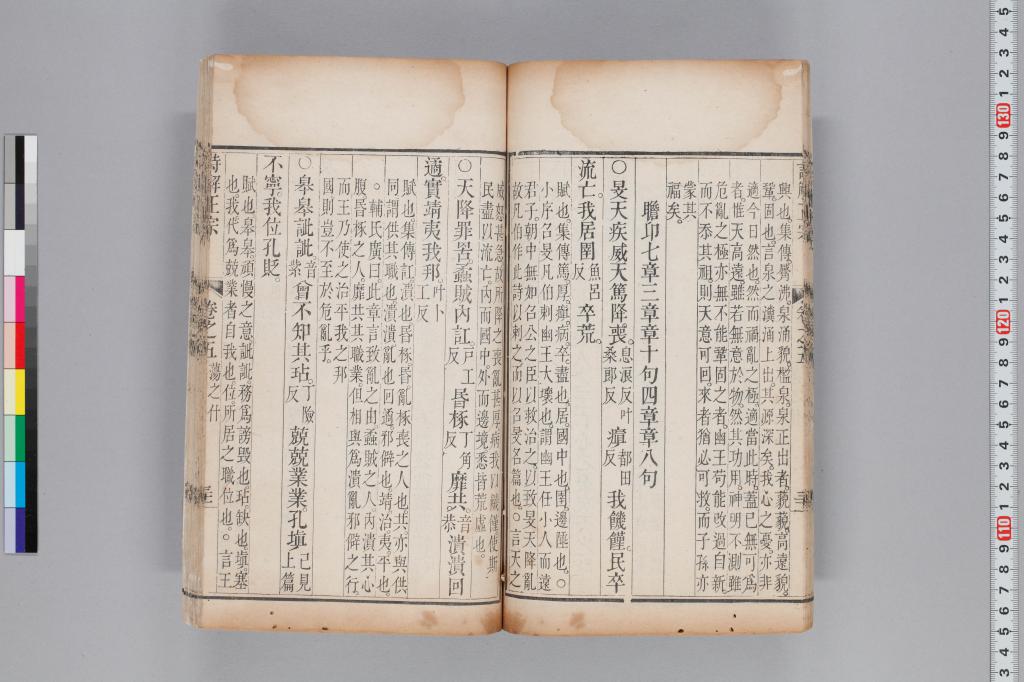 興也集傳觱沸泉涌貌檻泉泉正出者藐藐高遠貌
鞏固也言泉之濆涌上出其源深矣我心之憂亦非
適今日然也然而禍亂之極適當此時蓋已無可爲
者惟天高遠雖若無意於物然其功用神明不測雖
危亂之極亦無不能鞏固之者幽王苟能改過自新
而不忝其祖則天意可回來者猶必可救而子孫亦
蒙其
福矣
瞻卬七章三章章十句四章章八句
○旻天疾威天篤降喪息浪反叶桑郎反瘨都田反我饑饉民卒
流亡我居圉魚呂反卒荒
賦也集傳篤厚瘨病卒盡也居國中也圉邊陲也○
小序名旻凡伯刺幽王大壞也謂幽王任小人而遠
君子朝中無如召公之臣以救治之以致旻天降亂
故凡伯作此詩以刺之而以召旻名篇也○言天之
威怒甚急故所降之喪亂甚厚病我以饑饉使斯
民盡以流亡內而國中外而邊境悉皆荒虛也
○天降罪罟蟊賊內訌戶工反昏椓丁角反靡共音恭潰潰回
遹實靖夷我邦叶卜工反
賦也集傳訌潰也昏椓昏亂椓喪之人也共亦與供
同謂供其職也潰潰亂也回遹邪僻也靖治夷平也
○輔氏廣曰此章言致亂之由蟊賊之人內潰其心
腹昏椓之人靡共其職業但相與爲潰亂邪僻之行
而王乃使之治平我之邦
國則豈不至於危亂乎
○皋皋訿訿音紫曾不知其玷丁險反兢兢業業孔塡已見上篇
不寧我位孔貶
賦也皋皋頑慢之意訿訿務爲謗毀也玷缺也塡塞
也我代爲兢業者自我也位所居之職位也○言王
詩解正宗
卷之五
蕩之什